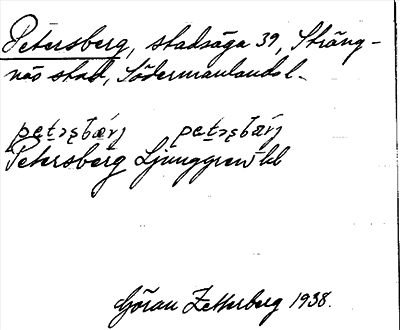 Petersberg, stadsäga 39, Sträng-
näs stad, Södermanlands l.
Petersberg Ljunggren
Göran Zetterberg 1938.